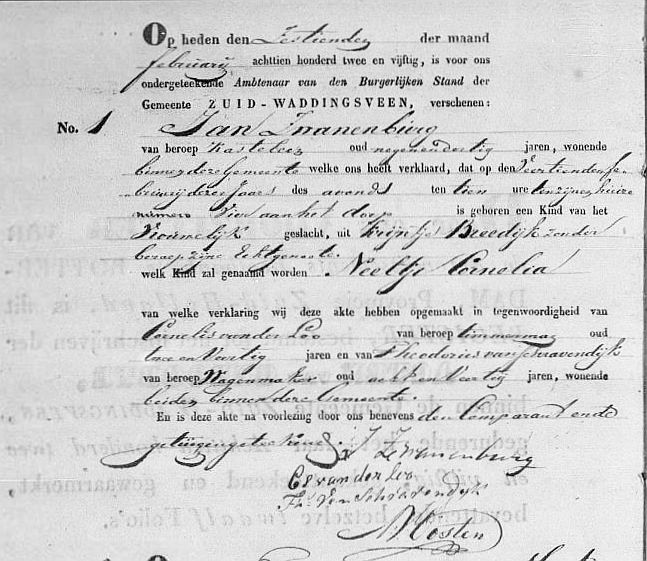 Op heden den Zestienden der maand
february achttien honderd twee en vijftig, is voor ons
ondergeteekende Ambtenaar van den Burgerlijken Stand der
Gemeente ZUID-WADDINGSVEEN, verschenen:
No. 1 Jan Kranenburg
van beroep Kastelein oud negenendertig jaren, wonende
binnen deze Gemeente welke ons heeft verklaard, dat op den Veertienden fe-
bruarij dezes Jaars des avonds ten tien ure ten zijnen huize
numero Vier aan het dorp is geboren een Kind van het
Vrouwelijk geslacht, uit Krijntje Breedijk zonder
beroep zijne Echtgenoote.
welk Kind zal genaamd worden Neeltje Cornelia
van welke verklaring wij deze akte hebben opgemaakt in tegenwoordigheid van
Cornelis van der Loo van beroep timmerman oud
twee en Veertig jaren en van Theodorus van Schravendijk
van beroep Wagenmaker oud acht en Veertig jaren, wonende
beiden binnen deze Gemeente.
En is deze akte na voorlezing door ons benevens den Comparant en de
getuigen geteekend.
J Kranenburg
Cs van der Loo
Th. van Schravendijk